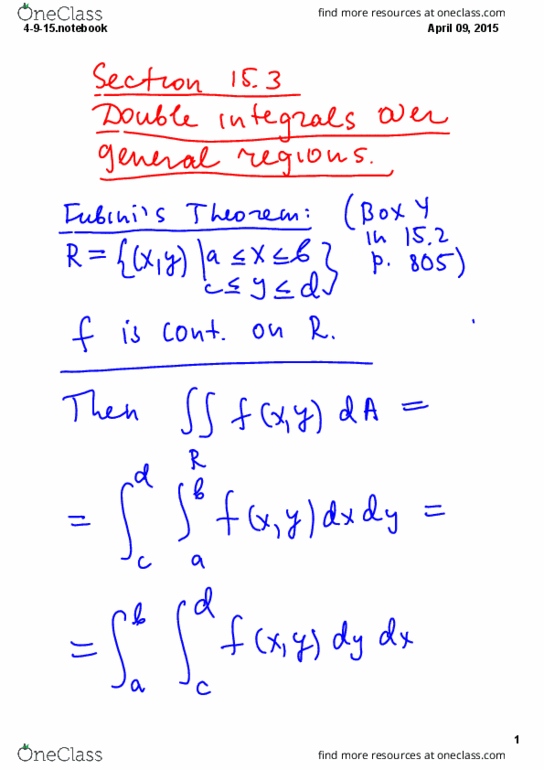 OneClass
find more resources at oneclass.com
4-9-15.notebook
April 09, 2015
Section 15.3
Double integrals over
general regions.
Fubini's Theorem: (Box 4
in 15.2
p. 805)
R = {(x,y) | a ≤ x ≤ b
c ≤ y ≤ d}
f is cont. on R.
Then ∬ f(x,y) dA =
R
= ∫_c^d ∫_a^b f(x,y) dx dy =
= ∫_a^b ∫_c^d f(x,y) dy dx
1
OneClass
find more resources at oneclass.com